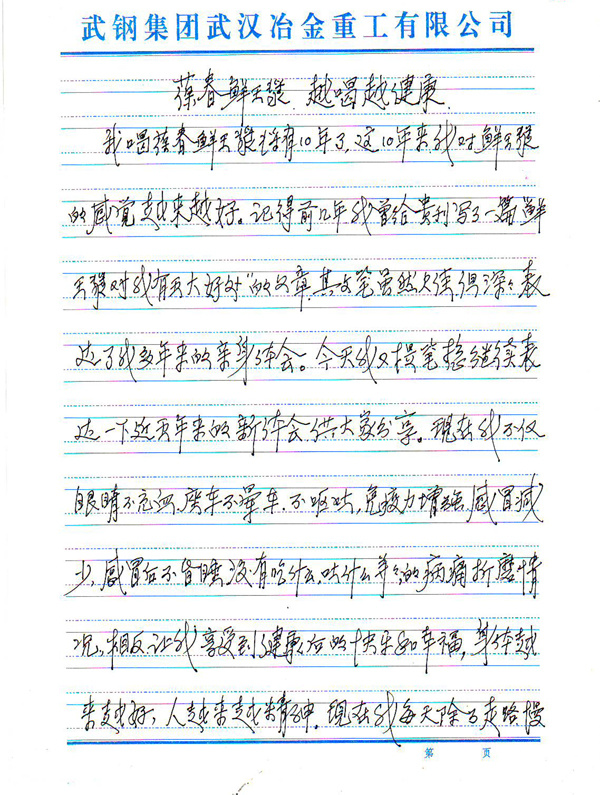 武钢集团武汉冶金重工有限公司
葆春鲜王浆 越喝越健康
我喝葆春鲜王浆好有10年了,这10年来,我对鲜王浆
的感觉越来越好。记得前几年我曾给贵刊写了一篇"鲜
王浆对我有五大好处"的文章,其文笔虽然欠佳,但深深表
达了我多年来的亲身体会。今天我又提笔想继续表
达一下近五年来的新体会供大家分享。现在我不仅
眼睛不充血,坐车不晕车,不呕吐,免疫力增强,感冒减
少,感冒后不昏睡,没有吃什么,吐什么等等的病痛折磨情
况,相反让我享受到健康后的快乐和幸福,身体越
来越好,人越来越精神。现在我每天除了走路慢
第 页